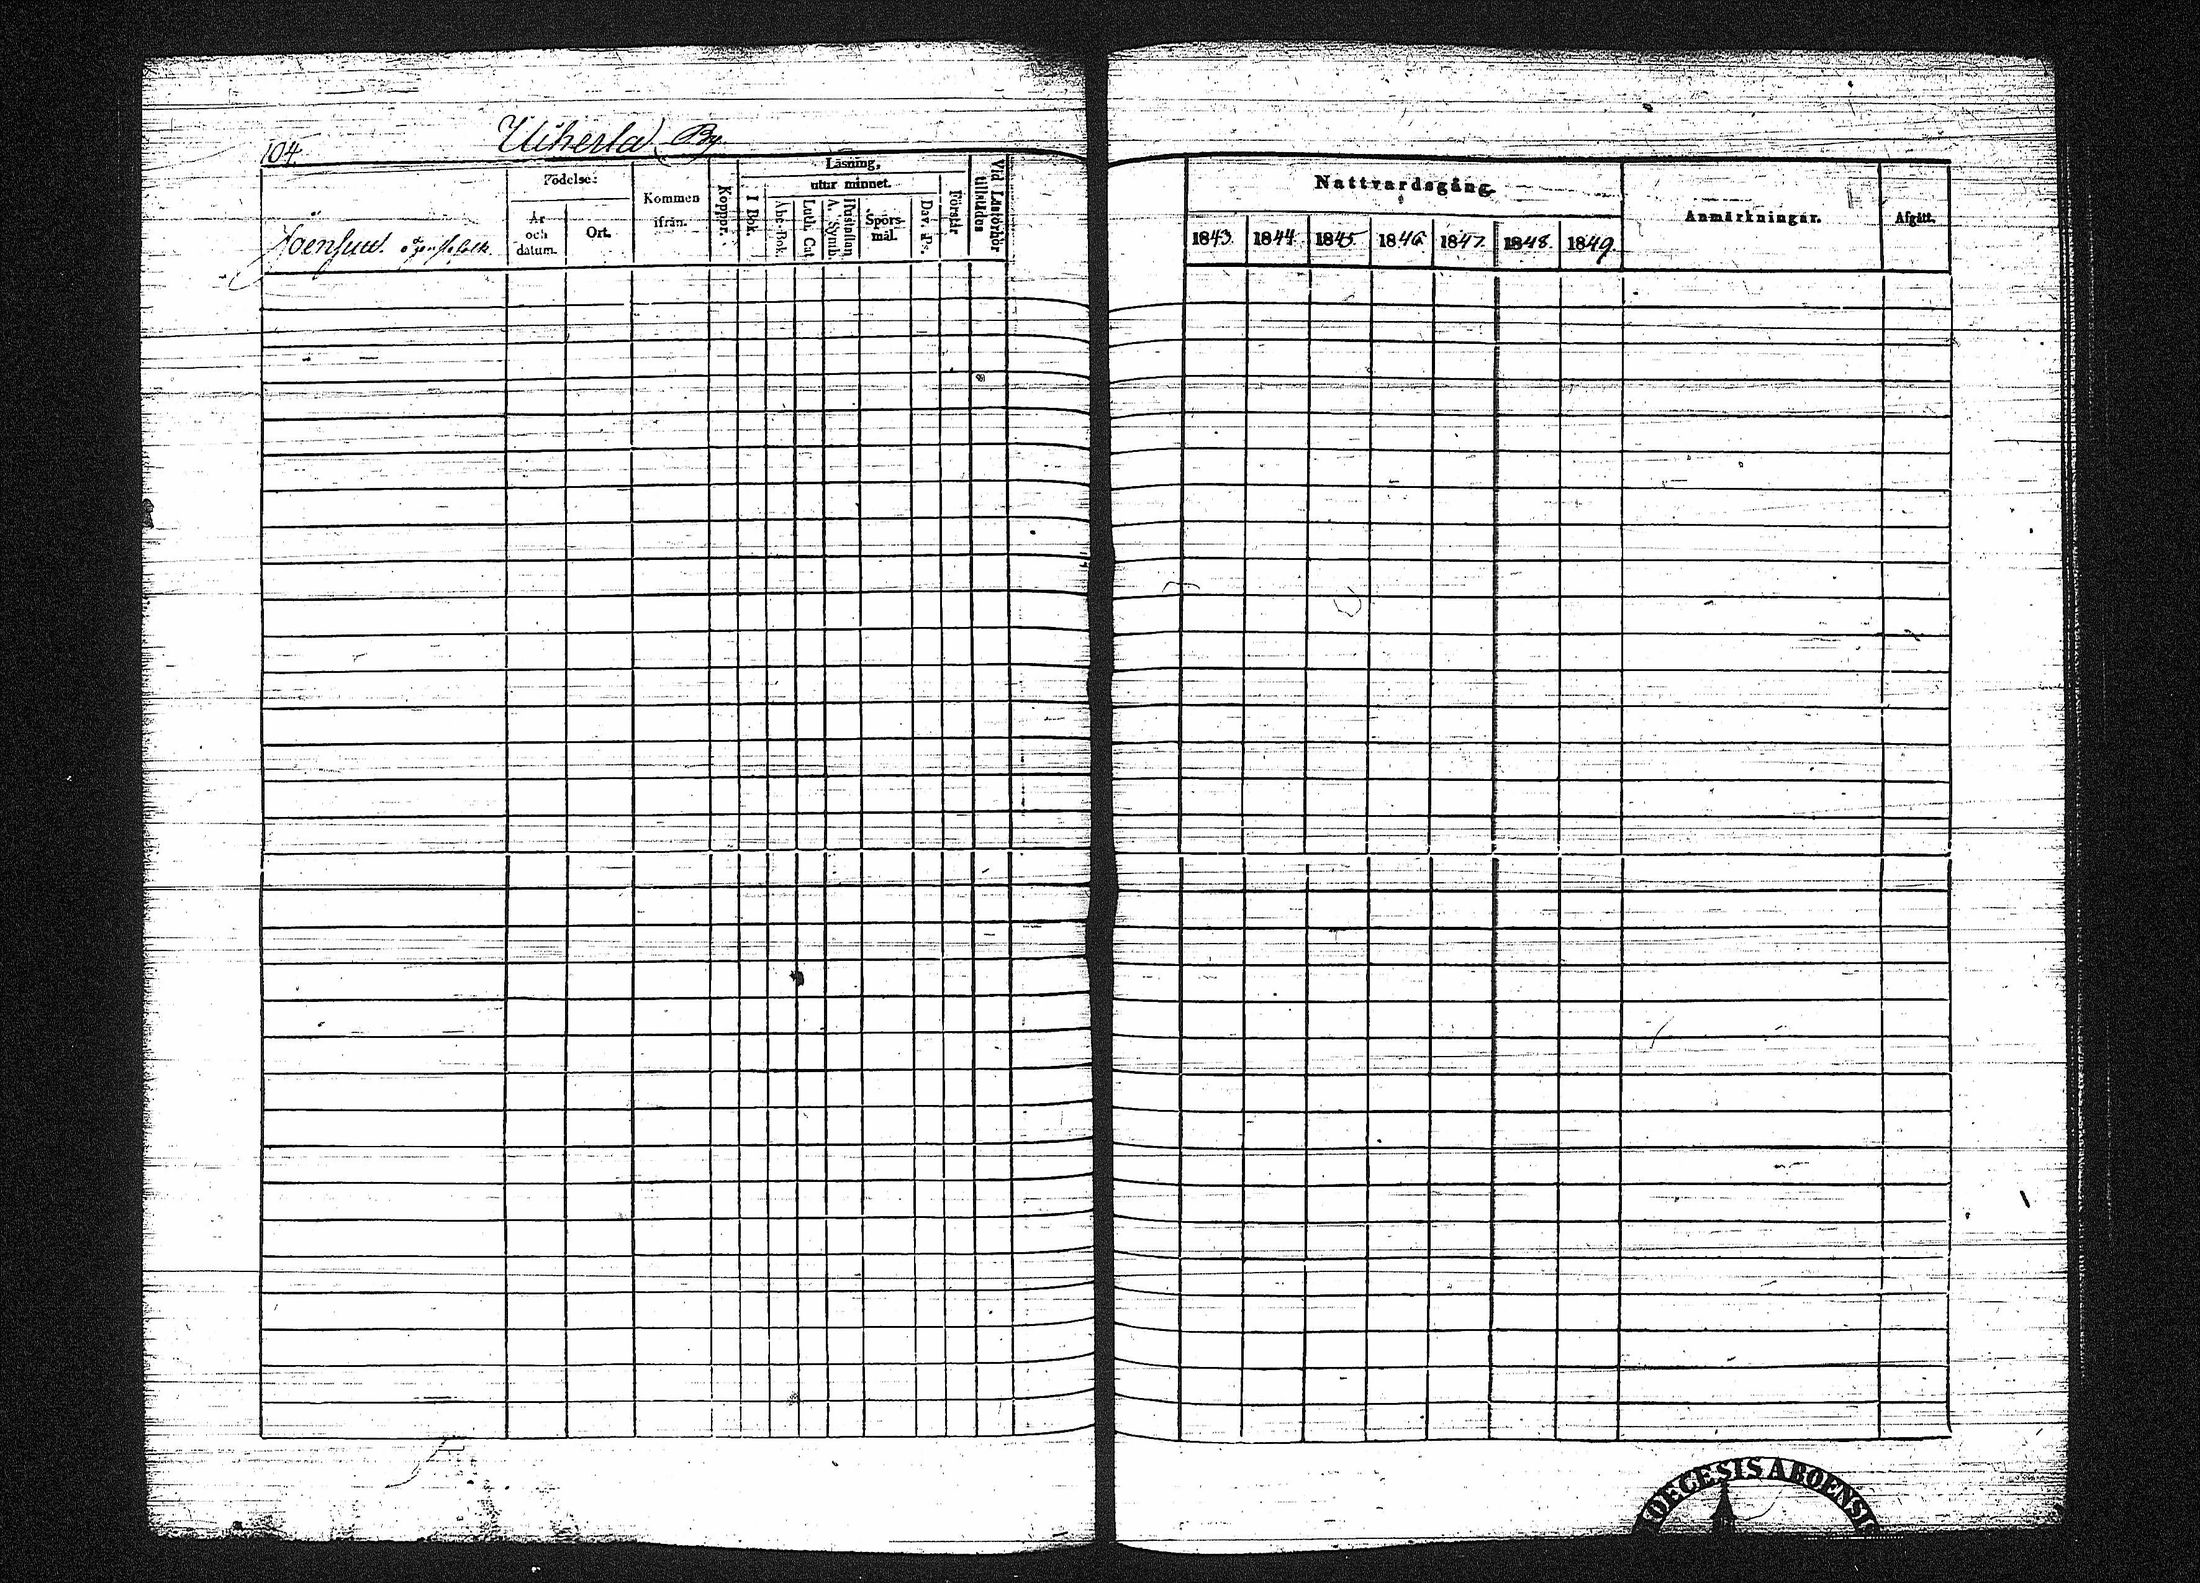 104.
Uiherla By
Födelse-
Läsning,
utur minnet.
År och datum.
Ort.
Kommen ifrån.
Koppor.
I Bok.
Abc-Bok.
Luth. Cat
Hustaflan A. Symb.
Spörs-mål.
Dav. Ps.
Förstår
Vid Läsförhör tillstädes
Nattvardsgång
1843. 1844. 1845. 1846. 1847. 1848. 1849.
Anmärkningar.
Afgått.
DIOECESIS ABOENSIS